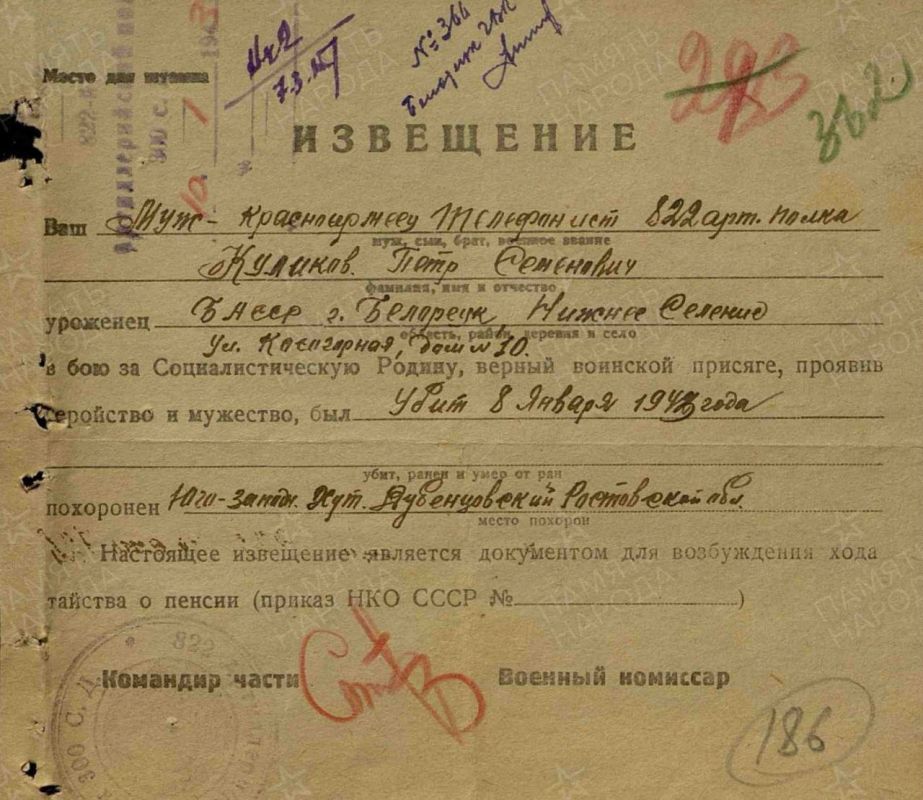 Место для штампа
822
артиллерийский
300 с.
1943
7.3.
№ 366
293
362.
ИЗВЕЩЕНИЕ
Ваш Муж - Красноармеец Телефонист 822 арт. полка
муж, сын, брат, военное звание
Куликов Петр Семенович
фамилия, имя и отчество
уроженец БАССР г. Белорецк Нижнее Селение
область, район, деревня и село
Ул. Косогорная, дом № 30.
в бою за Социалистическую Родину, верный воинской присяге, проявив
геройство и мужество, был Убит 8 Января 1943 года
убит, ранен и умер от ран
похоронен Юго-запад. Хут. Дубенцовский Ростовской обл.
место похорон
Настоящее извещение является документом для возбуждения хода
тайства о пенсии (приказ НКО СССР № )
Командир части Военный комиссар
822
300 С. Д.
186
ПАМЯТЬ НАРОДА